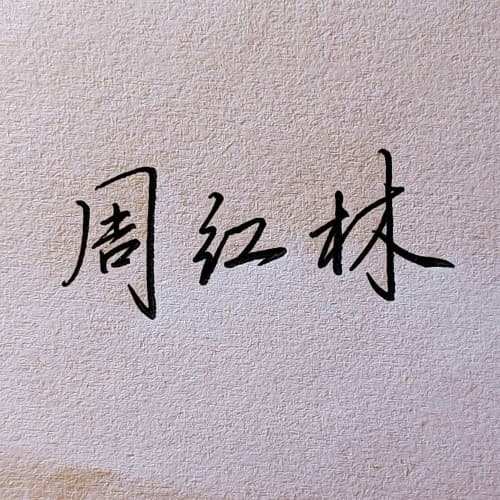 周红林